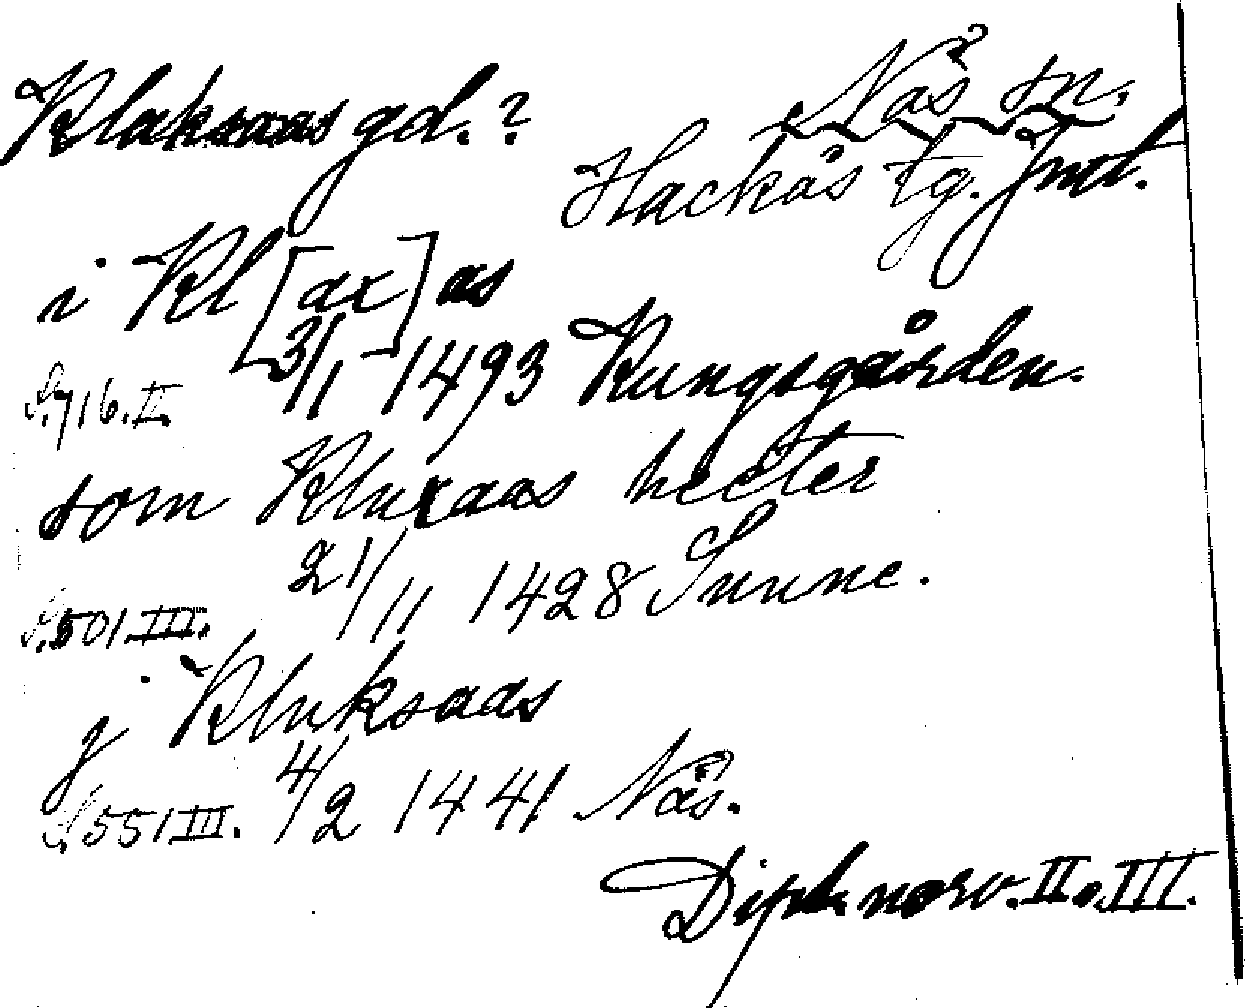 Klaksaas gd.? Näs sn.
Hackås tg. Jmt.
i Kl[ax]as
3/1 1493 Kungsgården.
S. 716. II.
som Kluxaas heeter
21/11 1428 Sunne.
S. 501. III.
j Kluksaas
S. 551 III. 4/2 1441 Näs.
Dipl. norv. II o. III.